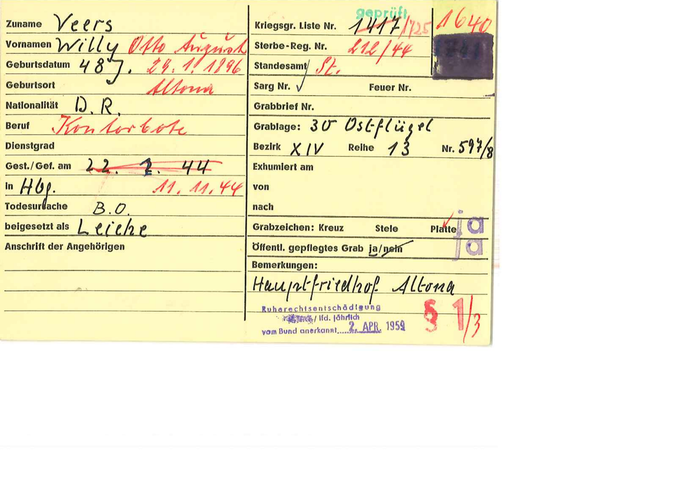 geprüft
Zuname Veers
Vornamen Willy Otto August
Geburtsdatum 48 J. 29.1.1896
Geburtsort Altona
Nationalität D.R.
Beruf Kontorbote
Dienstgrad
Gest./Gef. am 22. 2. 44
in Hbg. 11. 11. 44
Todesursache B.O.
beigesetzt als Leiche
Anschrift der Angehörigen
Kriegsgr. Liste Nr. 1417/1725
1640
Sterbe-Reg. Nr. 212/44
Standesamt St.
Sarg Nr. Feuer Nr.
Grabbrief Nr.
Grablage: 30 Ostflügel
Bezirk XIV Reihe 13 Nr. 597/8
Exhumiert am
von
nach
Grabzeichen: Kreuz Stele Platte ja
Öffentl. gepflegtes Grab ja/nein ja
Bemerkungen:
Hauptfriedhof Altona
Ruherechtsentschädigung
/ lfd. jährlich
vom Bund anerkannt 2. APR. 1959
§ 1/3